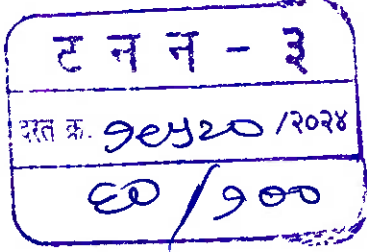 ट न न - ३
दस्त क्र. १९५२० /२०२४
६० / १००